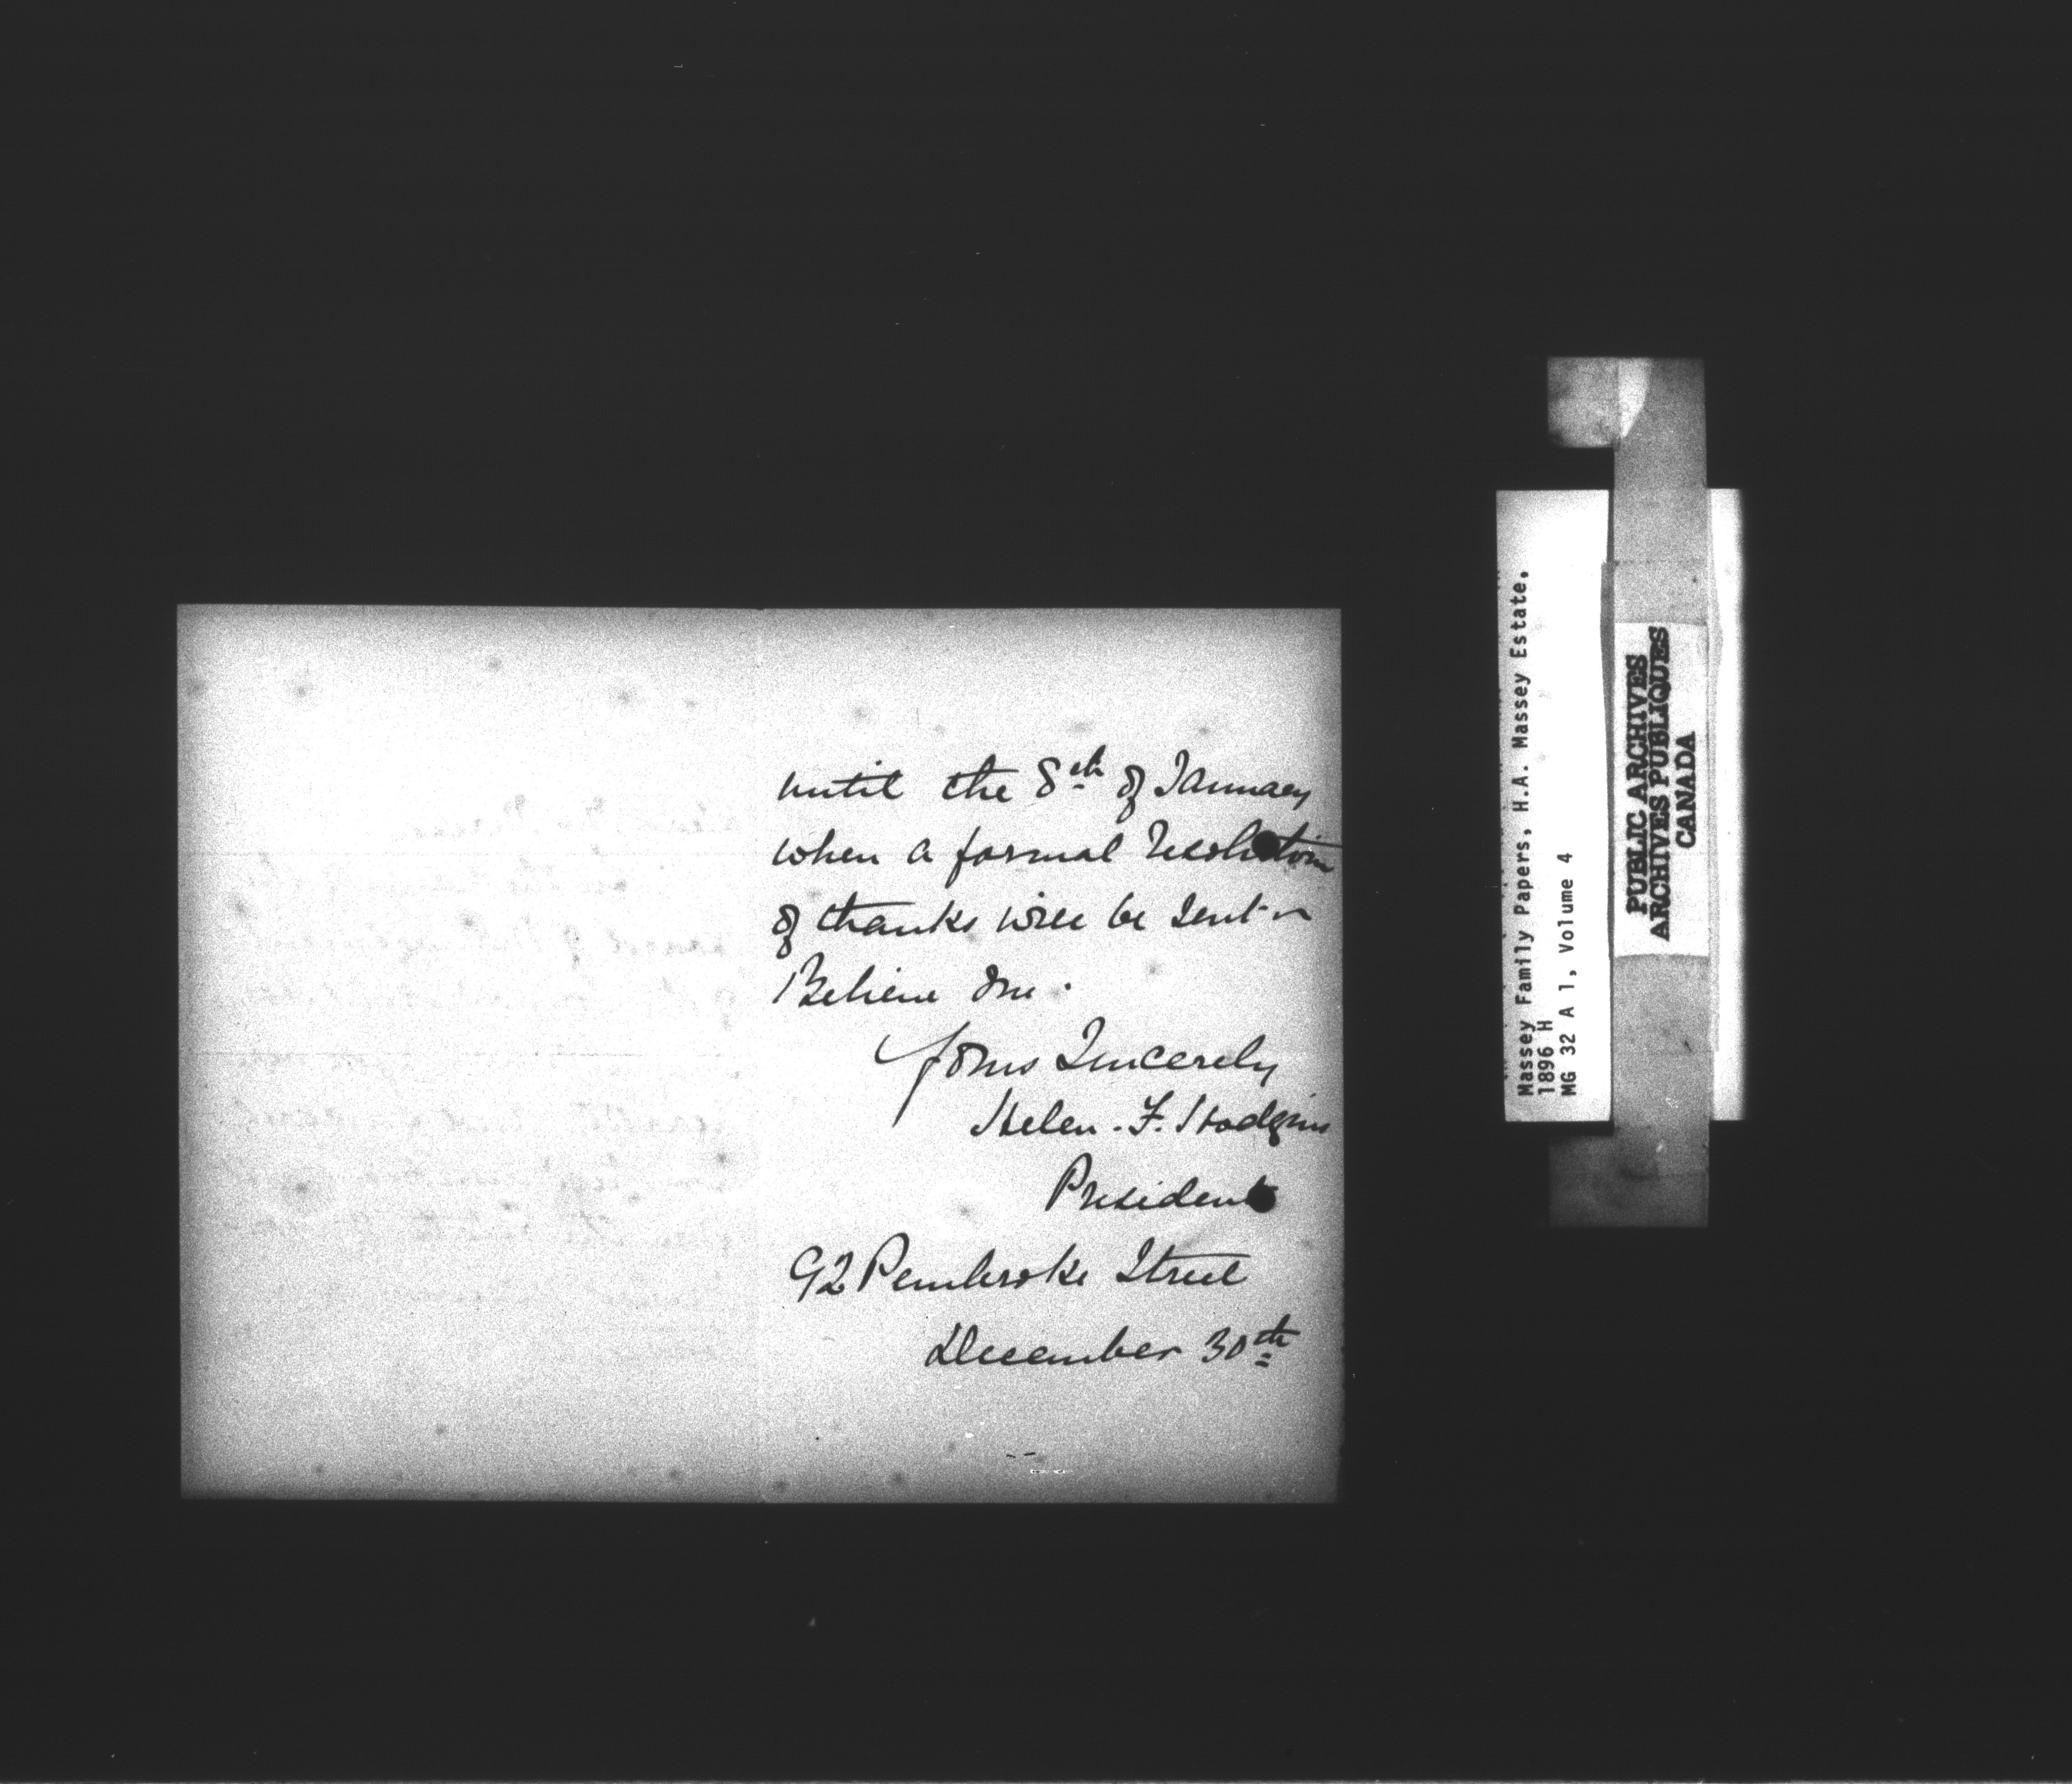 until the 8th of January
when a formal resolution
of thanks will be sent in
Believe me.
Yours Sincerely
Helen. F. Hodgins
President
92 Pembroke Street
December 30th
Massey Family Papers, H.A. Massey Estate,
1896 H
MG 32 A 1, Volume 4
PUBLIC ARCHIVES
ARCHIVES PUBLIQUES
CANADA